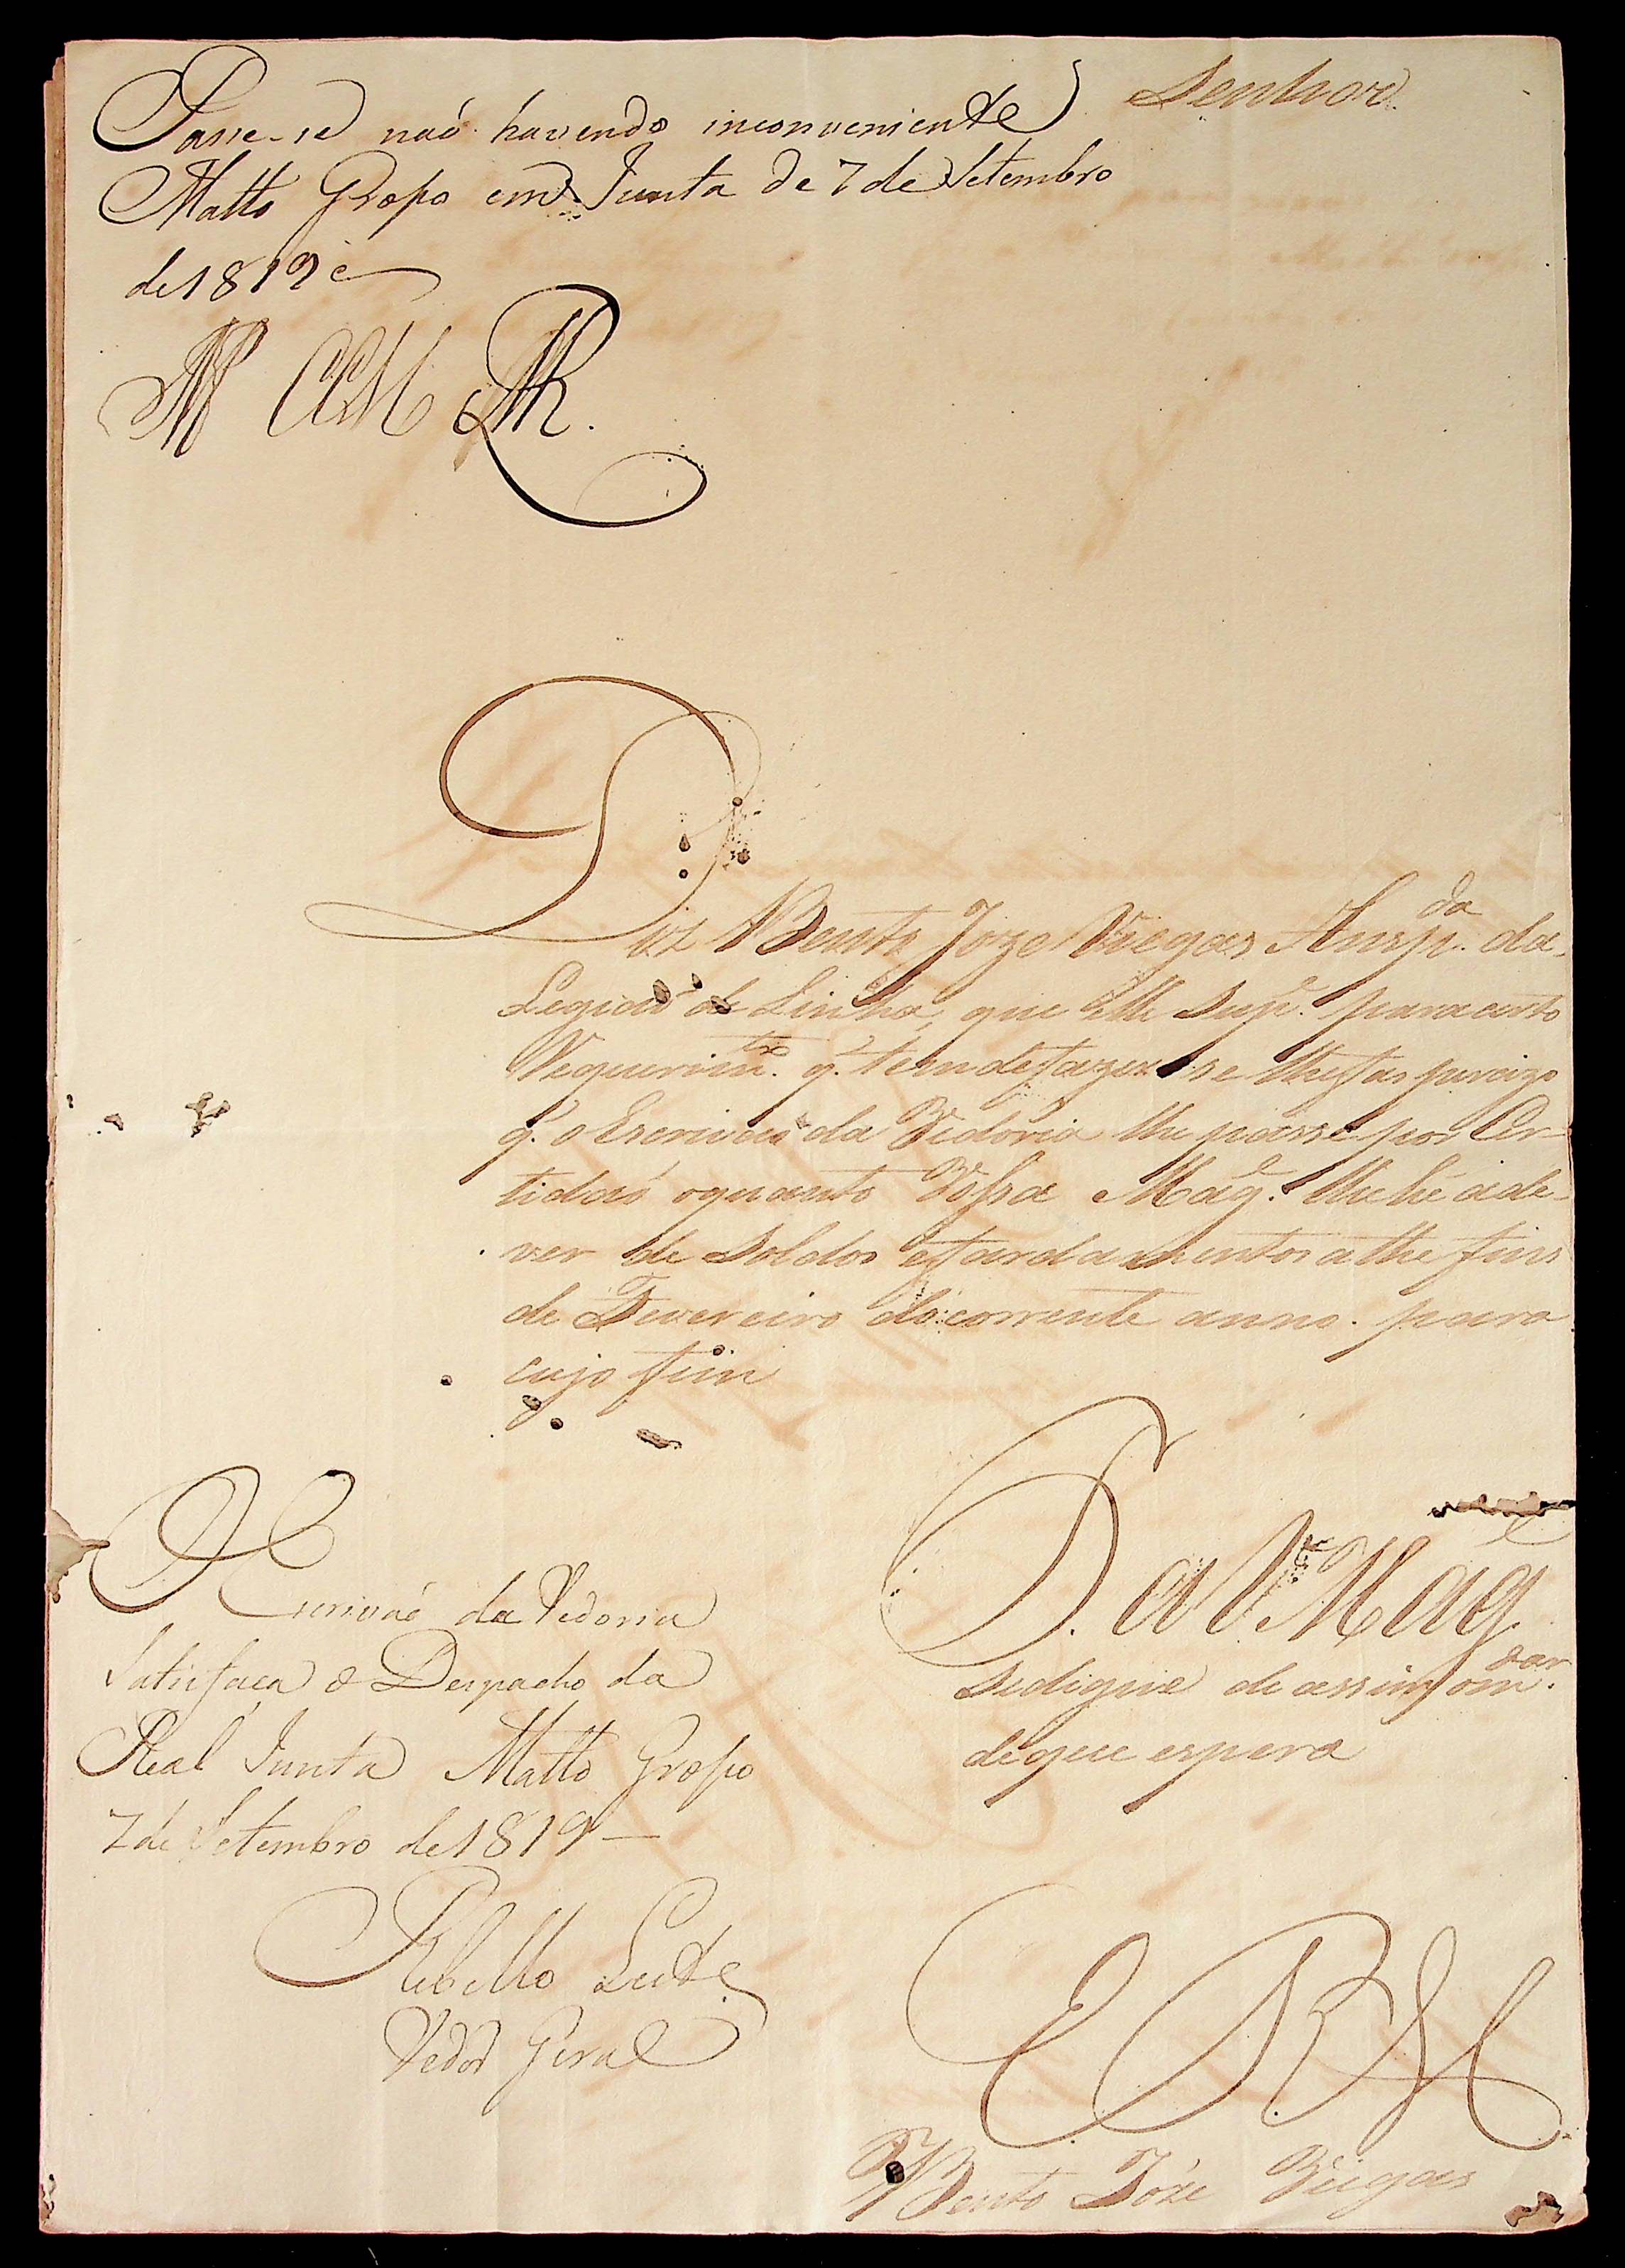 Senhor
Passe-se naõ havendo inconveniente
Matto Grosso em Junta de 7 de Setembro
de 1819
Diz Bento Joze Viegas Ansp.da da
Legiaõ de Linha, que elle Sup.e para certo
Requerim.to q. tem de fazer se lhe faz percizo
q. o Escrivaõ da Vedoria lhe passe por Cer-
tidaõ o quanto Vossa Mag.e lhe hé a de-
ver de Soldos e fardamentos athe fins
de Fevereiro do corrente anno. para
cujo fim
P. a V. Mag.e
se digne de assim o m.dar
de que espera
E R M
Bento Joze Veigas
O Escrivaõ da Vedoria
Satisfaça o Despacho da
Real Junta Matto Grosso
7 de Setembro de 1819
Rebello Leite
Vedor Geral